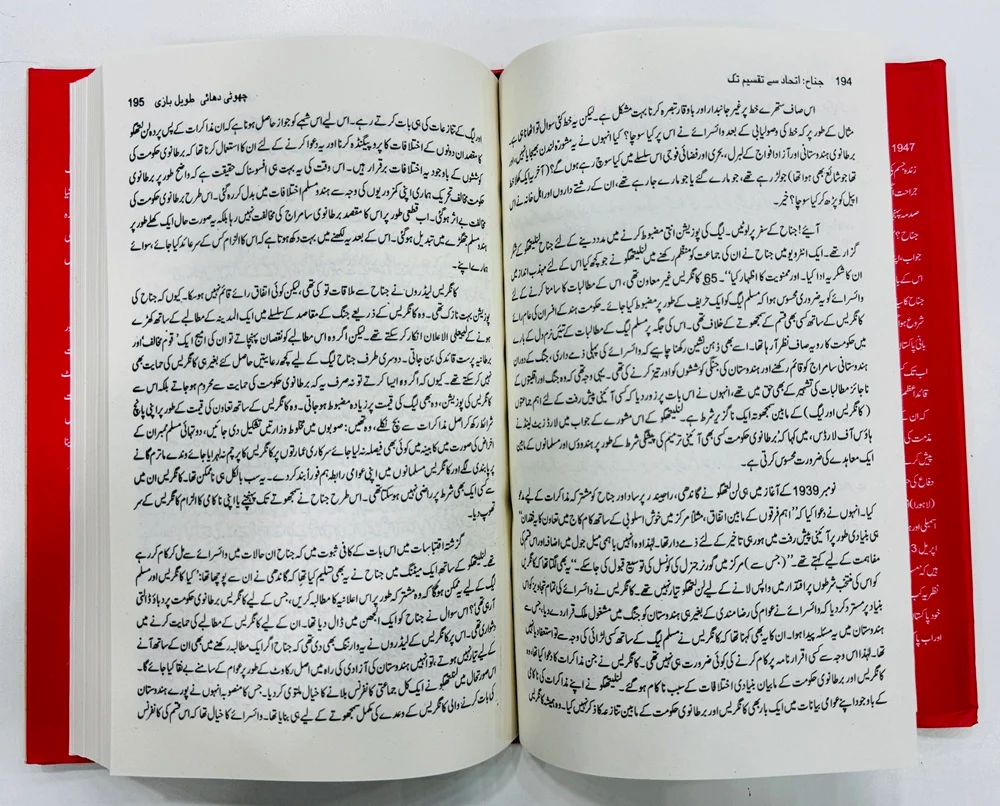 194 جناح: اتحاد سے تقسیم تک
اس صاف ستھرے خط پر غیر جانبدار اور باوقار تبصرہ کرنا بہت مشکل ہے۔ لیکن یہ خط کئی سوال تو اٹھاتا ہی ہے۔
مثال کے طور پر کہ خط کی وصولیابی کے بعد وائسرائے نے اس پر کیا سوچا؟ کیا انہوں نے یہ مشورہ لندن بھیجا یا نہیں؟
برطانوی ہندوستانی اور آزاد افواج کے لبرل، بحری اور فضائی فوجی اس سلسلے میں کیا سوچ رہے ہوں گے؟ (آخر یہ ایک کھلا خط
تھا جو شائع بھی ہوا تھا) جو لڑ رہے تھے، جو مارے گئے یا جو مارے جا رہے تھے، ان کے رشتے داروں اور اہل خانہ نے اس
اپیل کو پڑھ کر کیا سوچا؟ خیر۔
آیئے! جناح کے سفر پر لوٹیں۔ لیگ کی پوزیشن اتنی مضبوط کرنے میں مدد دینے کے لئے جناح لنلیتھگو کے شکر
گزار تھے۔ ایک انٹرویو میں جناح نے ان کی جماعت کو منظم رکھنے میں لنلیتھگو نے جو کچھ کیا اس کے لئے مہذب انداز میں
ان کا شکریہ ادا کیا۔ اور ممنونیت کا اظہار کیا"۔ 65 کانگریس غیر معاون تھی، اس کے مطالبات کا سامنا کرنے کے لئے
وائسرائے کو یہ ضروری محسوس ہوا کہ مسلم لیگ کو ایک حریف کے طور پر مضبوط کیا جائے۔ حکومت ہند کے افسران کی عام رائے
کانگریس کے ساتھ کسی بھی قسم کے سمجھوتے کے خلاف تھی۔ اس کی جگہ پر مسلم لیگ کے مطالبات کے تئیں نرم دلی کے بارے
میں حکومت کا رویہ صاف نظر آ رہا تھا۔ اسے بھی ذہن نشین رکھنا چاہیے کہ وائسرائے کی پہلی ذمے داری، جنگ کے دوران
ہندوستانی سامراج کو قائم رکھنے اور ہندوستان کی جنگی کوششوں کو اور تیز کرنے کی تھی۔ یہی وجہ تھی کہ وہ جنگ اور اقلیتوں کے
ناجائز مطالبات کی تشہیر کے بھی حق میں تھے، انہوں نے اس بات پر زور دیا کہ کسی آئینی پیش رفت کے لئے اہم جماعتوں
(کانگریس اور لیگ) کے مابین سمجھوتہ ایک ناگزیر شرط ہے۔ لنلیتھگو کے اس مشورے کے جواب میں لارڈ زیٹ لینڈ نے
ہاؤس آف لارڈس، میں کہا کہ برطانوی حکومت کسی بھی آئینی ترمیم کی پیشگی شرط کے طور پر ہندوؤں اور مسلمانوں کے مابین
ایک معاہدے کی ضرورت محسوس کرتی ہے۔
نومبر 1939 کے آغاز میں ہی لن لتھگو نے گاندھی، راجیندر پرساد اور جناح کو مشترکہ مذاکرات کے لیے مدعو
کیا۔ انہوں نے دعوا کیا کہ "اہم فرقوں کے مابین اتفاق، مثلاً مرکز میں خوش اسلوبی کے ساتھ کام کاج میں تعاون کا یہ فقدان
ہی بنیادی طور پر آئینی پیش رفت میں ہو رہی تاخیر کے لئے ذمے دار تھا۔ لہٰذا وہ انہیں باہمی میل جول میں اضافے اور اس قسم کی
مفاہمت کے لیے کہتے تھے۔" (جس سے) مرکز میں گورنر جنرل کی کونسل کی توسیع قبول کی جا سکے۔" یہ بھی لگتا تھا کہ کانگریس
کو اس کی منتخب شرطوں پر اقتدار میں واپس لانے کے لیے لن لتھگو تیار نہیں تھے۔ کانگریس نے وائسرائے کی تمام تجاویز کو اس
بنیاد پر مسترد کر دیا کہ وائسرائے نے عوام کی رضامندی کے بغیر ہی ہندوستان کو جنگ میں مشغول ملک قرار دے دیا، جس سے
ہندوستان میں یہ مسئلہ پیدا ہوا۔ ان کا یہ بھی کہنا تھا کہ کانگریس نے مسلم لیگ کے ساتھ کسی لڑائی کی وجہ سے تو استعفا دیا نہیں
تھا۔ لہٰذا اس وجہ سے کسی اقرارنامہ پر کام کرنے کی کوئی ضرورت ہی نہیں تھی۔ کانگریس نے جن مذاکرات کا دعوا کیا تھا، وہ
کانگریس اور برطانوی حکومت کے مابیان بنیادی اختلافات کے سبب ناکام ہو گئے۔ لنلیتھگو نے اپنے مذاکرات کی ناکامی
کے باوجود اپنے عوامی بیانات میں ایک بار بھی کانگریس اور برطانوی حکومت کے مابین تنازعہ کا ذکر نہیں کیا۔ وہ ہمیشہ کانگریس
چھوٹی دھائی طویل بازی 195
اور لیگ کے تنازعات کی ہی بات کرتے رہے۔ اس لیے اس شبہے کو جواز حاصل ہوتا ہے کہ ان مذاکرات کے پس پردہ لن لتھگو
کا مقصد ان دونوں کے اختلافات کا پروپیگنڈہ کرنا اور یہ دعوا کرنے کے لئے ان کا استعمال کرنا تھا کہ برطانوی حکومت کی
کوششوں کے باوجود یہ اختلافات برقرار ہیں۔ اس وقت کی یہ بہت ہی افسوسناک حقیقت ہے کہ واضح طور پر برطانوی
حکومت مخالف تحریک ہماری اپنی کمزوریوں کی وجہ سے ہندو مسلم اختلافات میں بدل کر رہ گئی۔ اس طرح برطانوی حکومت کی
مخالفت بے اثر ہو گئی۔ اب قطعی طور پر اس کا مقصد برطانوی سامراج کی مخالفت نہیں رہا بلکہ یہ صورت حال ایک کھلے طور پر
ہندو مسلم جھگڑے میں تبدیل ہو گئی۔ اس کے بعد یہ لکھنے میں بہت دکھ ہوتا ہے کہ اس کا الزام کس کے سر عائد کیا جائے، سوائے
ہمارے اپنے۔
کانگریس لیڈروں نے جناح سے ملاقات تو کی تھی، لیکن کوئی اتفاق رائے قائم نہیں ہو سکا۔ کیوں کہ جناح کی
پوزیشن بہت نازک تھی۔ وہ کانگریس کے ذریعے جنگ کے مقاصد کے سلسلے میں ایک اعلانیہ کے مطالبے کے ساتھ کھڑے
ہونے کے لیے علی الاعلان انکار کر سکتے تھے۔ لیکن اگر وہ اس مطالبے کو نقصان پہنچاتے تو ان کی امیج ایک 'قوم مخالف' اور
برطانیہ پرست قائد کی بن جاتی۔ دوسری طرف جناح لیگ کے لیے کچھ رعایتیں حاصل کئے بغیر ہی کانگریس کی حمایت بھی
نہیں کر سکتے تھے۔ کیوں کہ اگر وہ ایسا کرتے تو نہ صرف یہ کہ برطانوی حکومت کی حمایت سے محروم ہو جاتے بلکہ اس سے
کانگریس کی پوزیشن، وہ بھی لیگ کی قیمت پر زیادہ مضبوط ہو جاتی۔ وہ کانگریس کے ساتھ تعاون کی قیمت کے طور پر اپنی پانچ
شرائط رکھ کر اصل مذاکرات سے بچ نکلے، وہ تھیں: صوبوں میں مخلوط وزارتیں تشکیل دی جائیں، دو تہائی مسلم ممبران کے
اعتراض کی صورت میں کابینہ میں کوئی بھی فیصلہ نہ لیا جائے سرکاری عمارتوں پر کانگریس کا پرچم نہ لہرایا جائے وندے ماترم گانے
پر پابندی لگے اور کانگریس مسلمانوں میں اپنی عوامی رابطہ مہم فوراً بند کر دے۔ یہ سب بالکل ہی ناممکن تھا۔ کانگریس ان میں
سے کسی ایک بھی شرط پر راضی نہیں ہو سکتی تھی۔ اس طرح جناح نے سمجھوتے تک پہنچنے یا اپنی ناکامی کا الزام کانگریس کے سر
تھوپ دیا۔
گزشتہ اقتباسات میں اس بات کے کافی ثبوت ہیں کہ جناح ان حالات میں وائسرائے سے مل کر کام کر رہے
تھے۔ لنلیتھگو کے ساتھ ایک میٹنگ میں جناح نے یہ بھی تسلیم کیا تھا کہ گاندگی نے ان سے پوچھا تھا: 'کیا کانگریس اور مسلم
لیگ کے لیے ممکن ہوگا کہ وہ مشترکہ طور پر اس اعلانیہ کا مطالبہ کریں، جس کے لیے کانگریس برطانوی حکومت پر دباؤ ڈالتی
آ رہی تھی؟' اس سوال نے جناح کو ایک الجھن میں ڈال دیا تھا۔ ان کے لیے کانگریس کے مطالبے کی حمایت کرنے میں
دشواری تھی۔ اس پر کانگریس کے لیڈروں نے یہ وارننگ بھی دی تھی کہ جناح اگر ایک مطالبہ رکھنے میں بھی ان کے ساتھ آنے
کے لیے تیار نہیں ہوتے، تو انہیں ہندوستان کی آزادی کی راہ میں اصل رکاوٹ کے طور پر عوام کے سامنے بے نقاب کیا جائے گا۔
اس صورتحال میں لنلیتھگو نے ایک کل جماعتی کانفرنس بلانے کا خیال ملتوی کر دیا۔ جس کا منصوبہ انہوں نے پورے ہندوستان
کی بات کرنے والی کانگریس کے وعدے کی مکمل سمجھوتے کے لیے ہی بنایا تھا۔ وائسرائے کا خیال تھا کہ اس قسم کی کانفرنس
1947